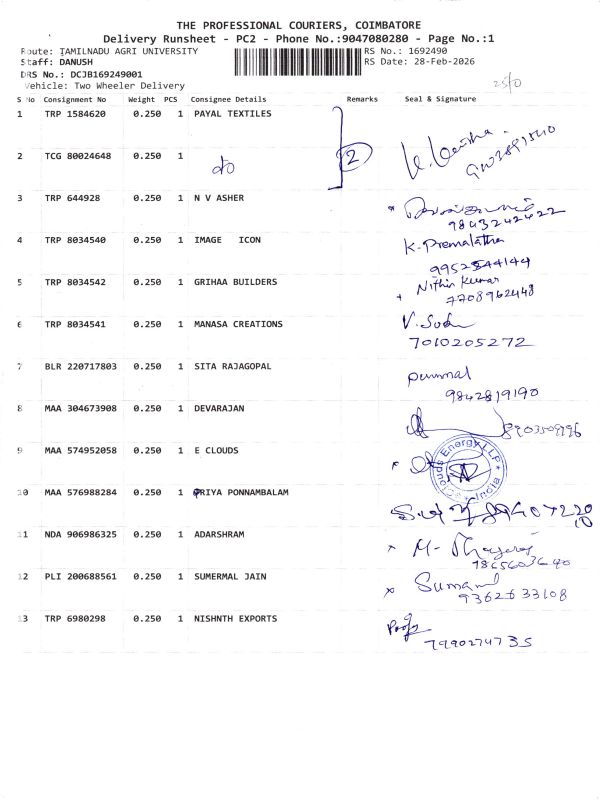 THE PROFESSIONAL COURIERS, COIMBATORE
Delivery Runsheet - PC2 - Phone No.:9047080280 - Page No.:1
Route: TAMILNADU AGRI UNIVERSITY RS No.: 1692490
Staff: DANUSH RS Date: 28-Feb-2026
DRS No.: DCJB169249001
Vehicle: Two Wheeler Delivery
S No Consignment No Weight PCS Consignee Details Remarks Seal & Signature
1 TRP 1584620 0.250 1 PAYAL TEXTILES
2 TCG 80024648 0.250 1 2
3 TRP 644928 0.250 1 N V ASHER
9843242422
4 TRP 8034540 0.250 1 IMAGE ICON K. Premalatha
9952544144
5 TRP 8034542 0.250 1 GRIHAA BUILDERS Nithin Kumar
7708962448
6 TRP 8034541 0.250 1 MANASA CREATIONS
7010205272
7 BLR 220717803 0.250 1 SITA RAJAGOPAL
9842819190
8 MAA 304673908 0.250 1 DEVARAJAN
9 MAA 574952058 0.250 1 E CLOUDS
Eclouds Energy LLP India
10 MAA 576988284 0.250 1 PRIYA PONNAMBALAM
11 NDA 906986325 0.250 1 ADARSHRAM
12 PLI 200688561 0.250 1 SUMERMAL JAIN
9362633108
13 TRP 6980298 0.250 1 NISHNTH EXPORTS
7990274735